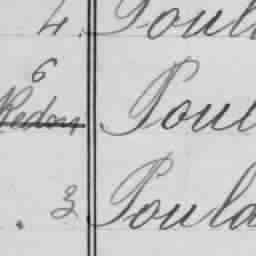 4. Poul
6
Pedon Poul
. 3 Poula